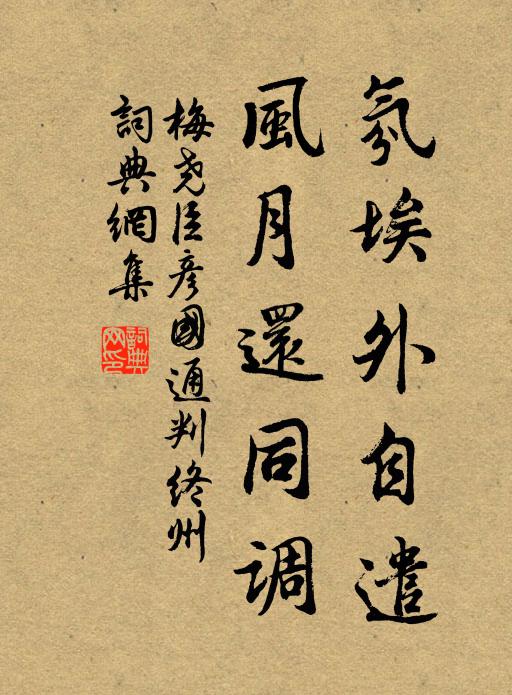 氛埃外自遣
風月還同調
梅尧臣彦國通判终州
詞典網集
詞典網印